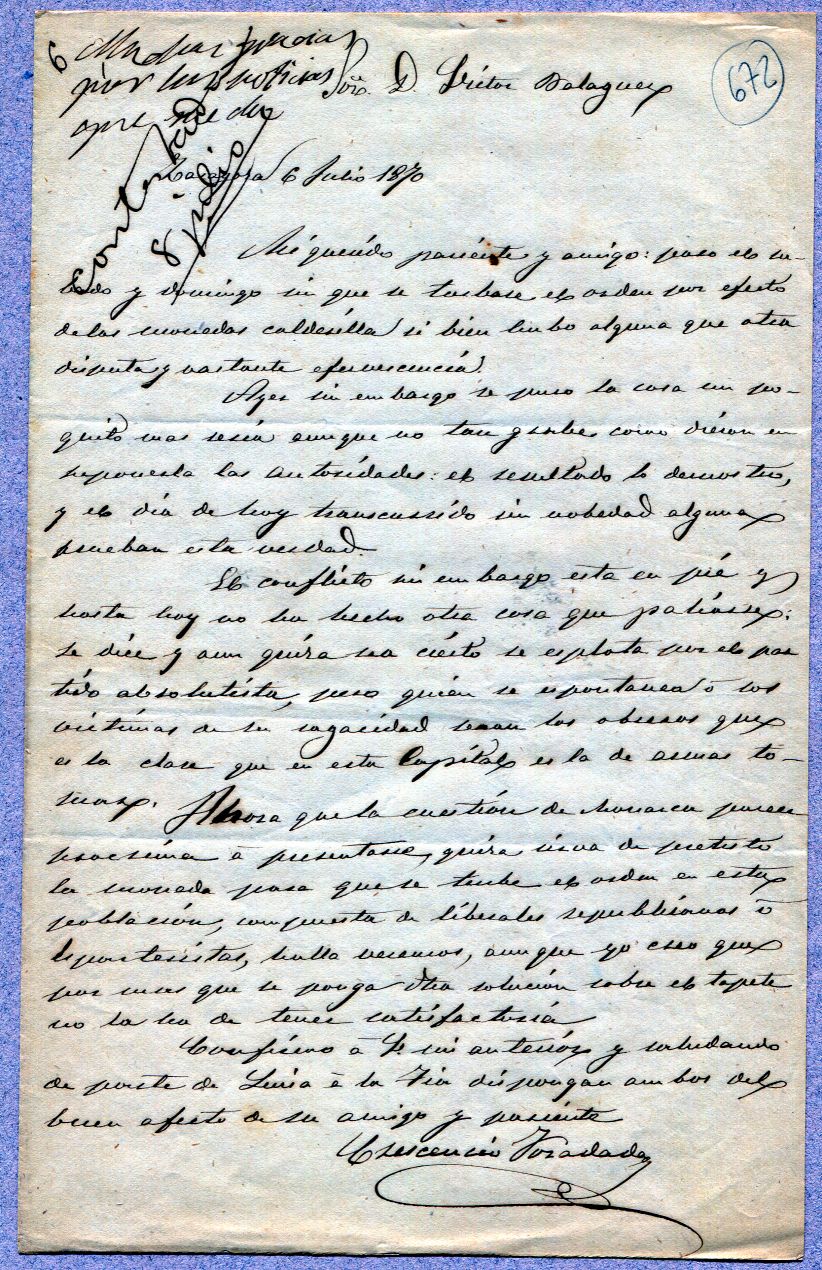 6 Muchas gracias
por las noticias
que me da
Contestad
8 julio
672
Sor. D. Victor Balaguer
Zaragoza 6 Julio 1870
Mi querido pariente y amigo: paso el sa-
bado y domingo sin que se turbase el orden por efecto
de las monedas calderilla si bien hubo alguna que otra
disputa y vastante efervescencia.
Ayer sin embargo se puso la cosa un po-
quito mas seria aunque no tan grabe como dieron en
suponerla las autoridades: el resultado lo demostró,
y el dia de hoy transcurrido sin nobedad alguna
prueban esta verdad.
El conflicto sin embargo esta en pié y
hasta hoy no ha hecho otra cosa que paliarse:
se dice y aun quiza sea cierto se esplota por el par
tido absolutista, pero quien se espontanea ó sos
victimas de su sagacidad seran los obreros que
es la clase que en esta Capital es la de armas to-
mar. Ahora que la cuestión de Monarca parece
procsima á presentarse, quiza sirva de pretesto
la moneda para que se turbe el orden en esta
población, compuesta de liberales republicanos ó
Esparteristas, halla veremos, aunque yo creo que
por mas que se ponga otra solución sobre el tapete
no la ha de tener satisfactoria
Confirmo á V. mi anterior y saludando
de parte de Luisa á la Tia dispongan ambos del
buen afecto de su amigo y pariente
Crescencio Foradada